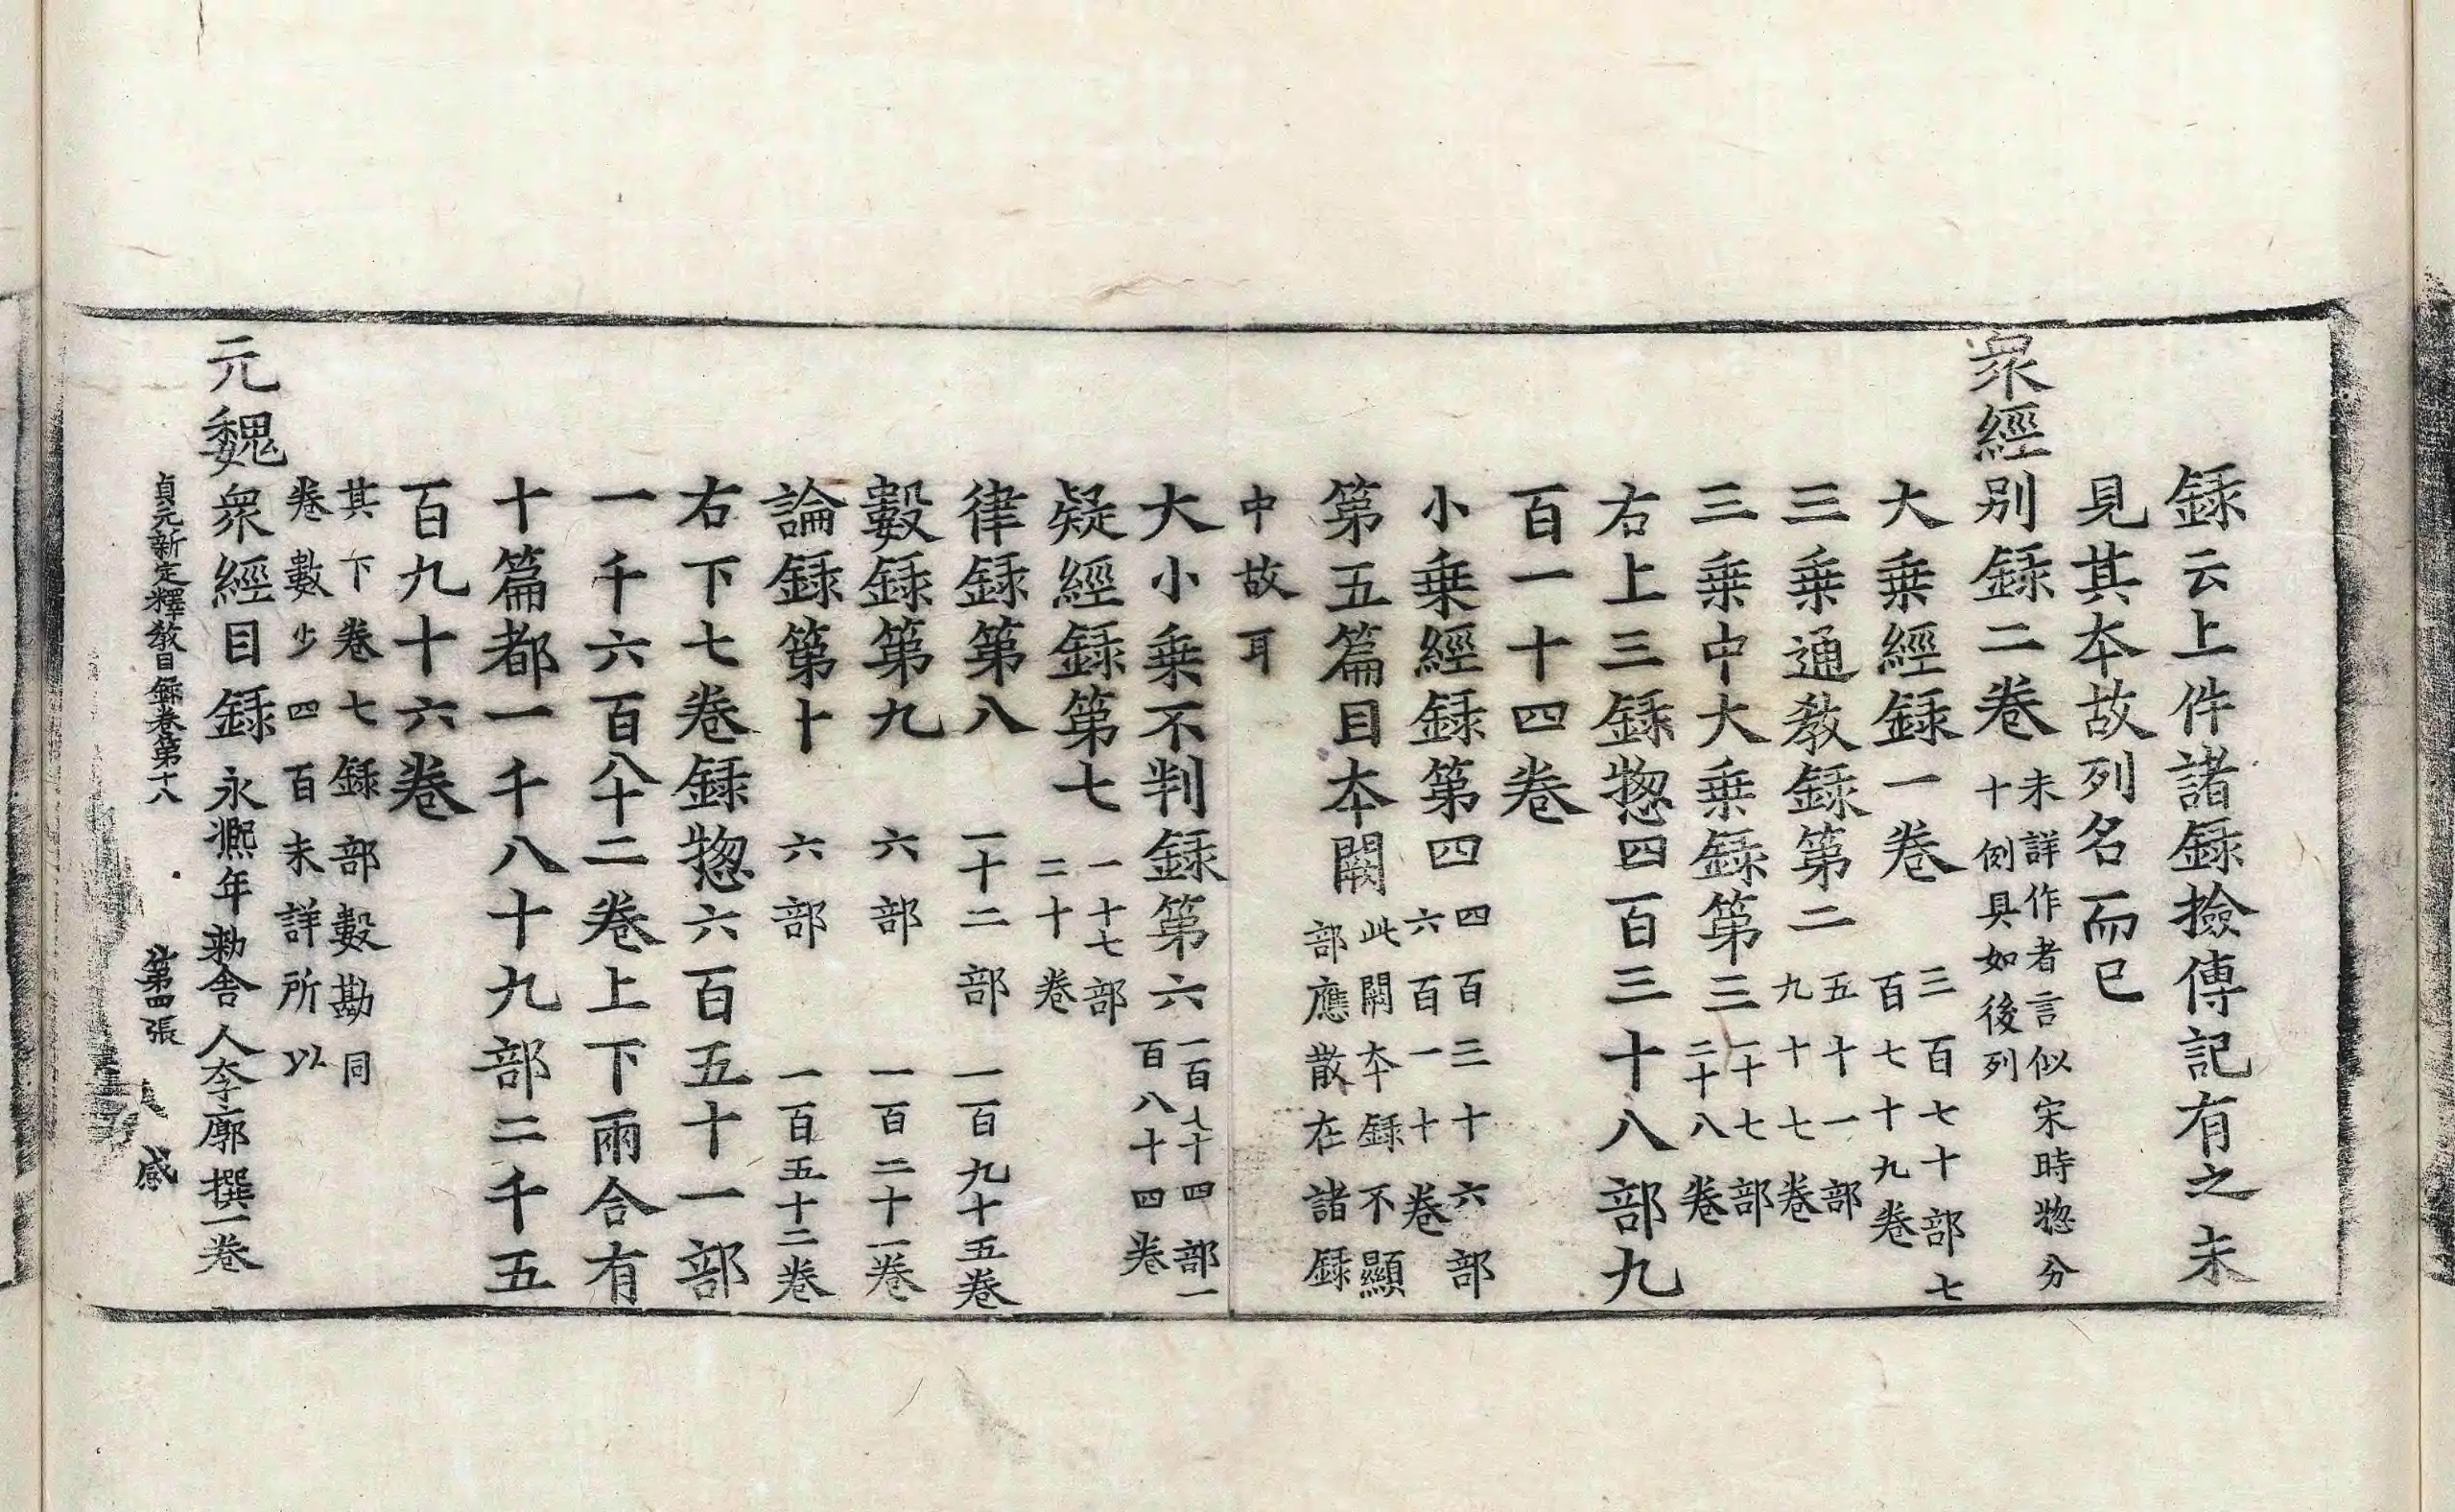 録云上件諸録撿傳記有之未
見其夲故列名而已
衆經别録二卷 未詳作者言似宋時惣分十例具如後列
大乗經録一卷 三百七十部七百七十九卷
三乗通教録第二 五十一部九十七卷
三乗中大乗録第三 一十七部二十八卷
右上三録惣四百三十八部九
百一十四卷
小乗經録第四 四百三十六部六百一十卷
第五篇目夲闕 此闕夲録不顯部應散在諸録
中故耳
大小乗不判録第六 一百七十四部一百八十四卷
疑經録第七 一十七部二十卷
律録第八 一十二部 一百九十五卷
數録第九 六部 一百二十一卷
論録第十 六部 一百五十二卷
右下七卷録惣六百五十一部
一千六百八十二卷上下兩合有
十篇都一千八十九部二千五
百九十六卷
其下卷七録部數勘同卷數少四百未詳所以
元魏衆經目録 永熈年勑舎人李廓撰一卷
貞元新定釋教目録卷第十八 第四張 感